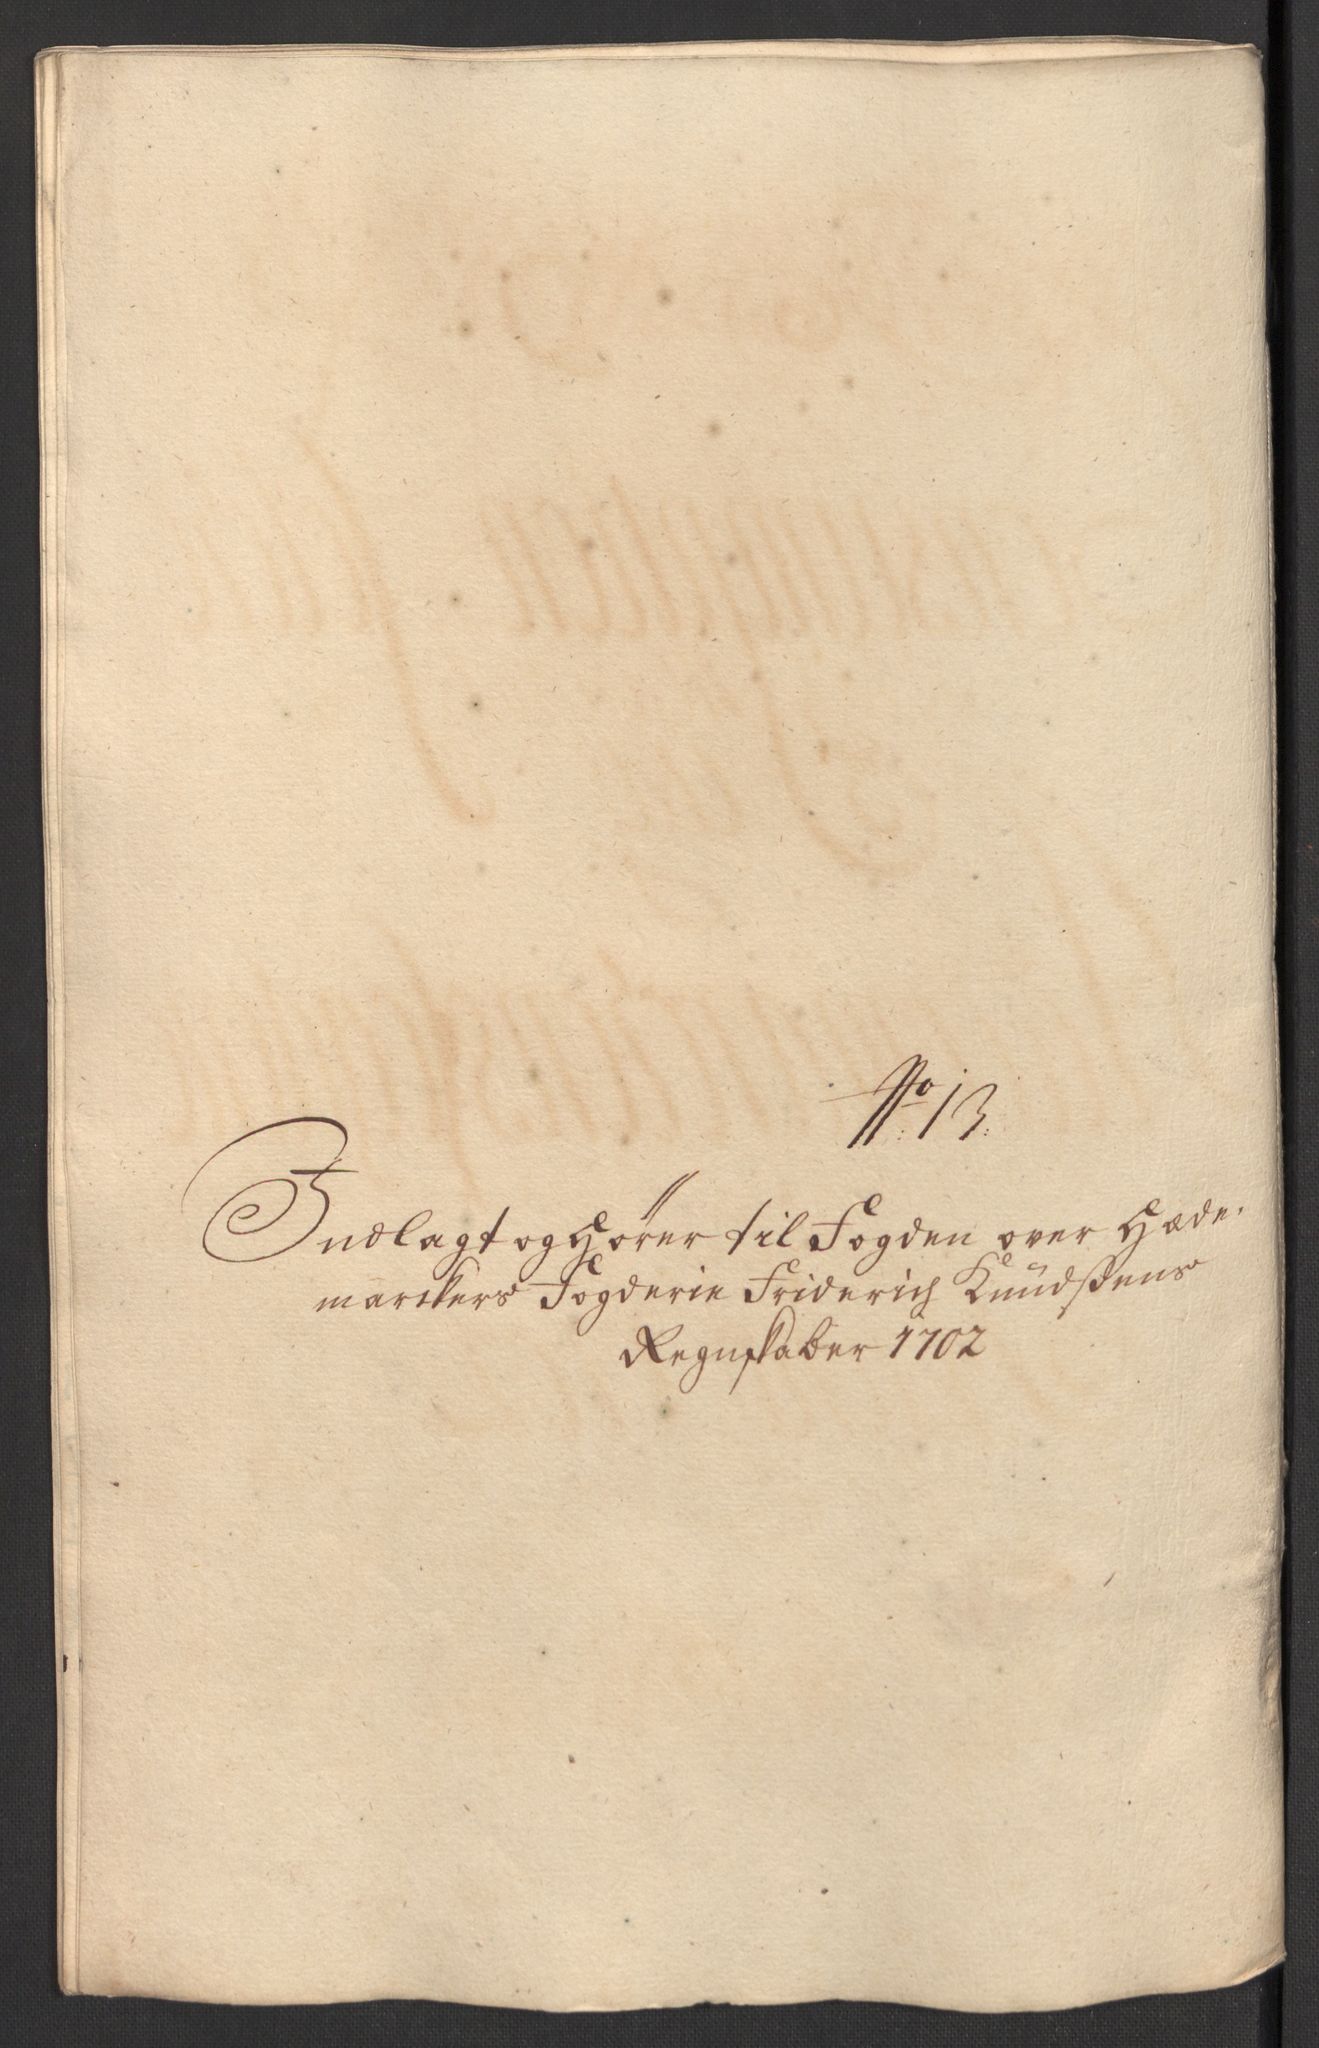 No 13.
Indlagt og Hører til Fogden over Hæde-
marckers Fogderie Friderich Knudsens
Regnskaber 1702